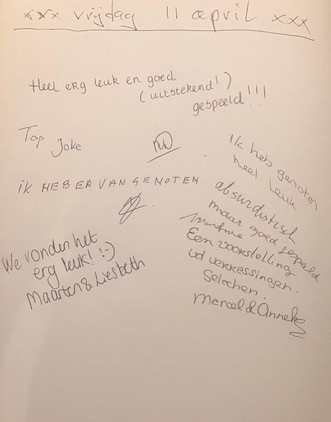 xxx vrijdag 11 april xxx
Heel erg leuk en goed
(uitstekend!)
gespeeld!!!
Top
Joke
IK HEB ER VAN GENOTEN
We vonden het
erg leuk! :-)
Maarten & Liesbeth
Ik heb genoten
heel leuk
absurdistisch
maar goed gespeeld
Een voorstelling
vd verrassingen.
Mercel & Anneke